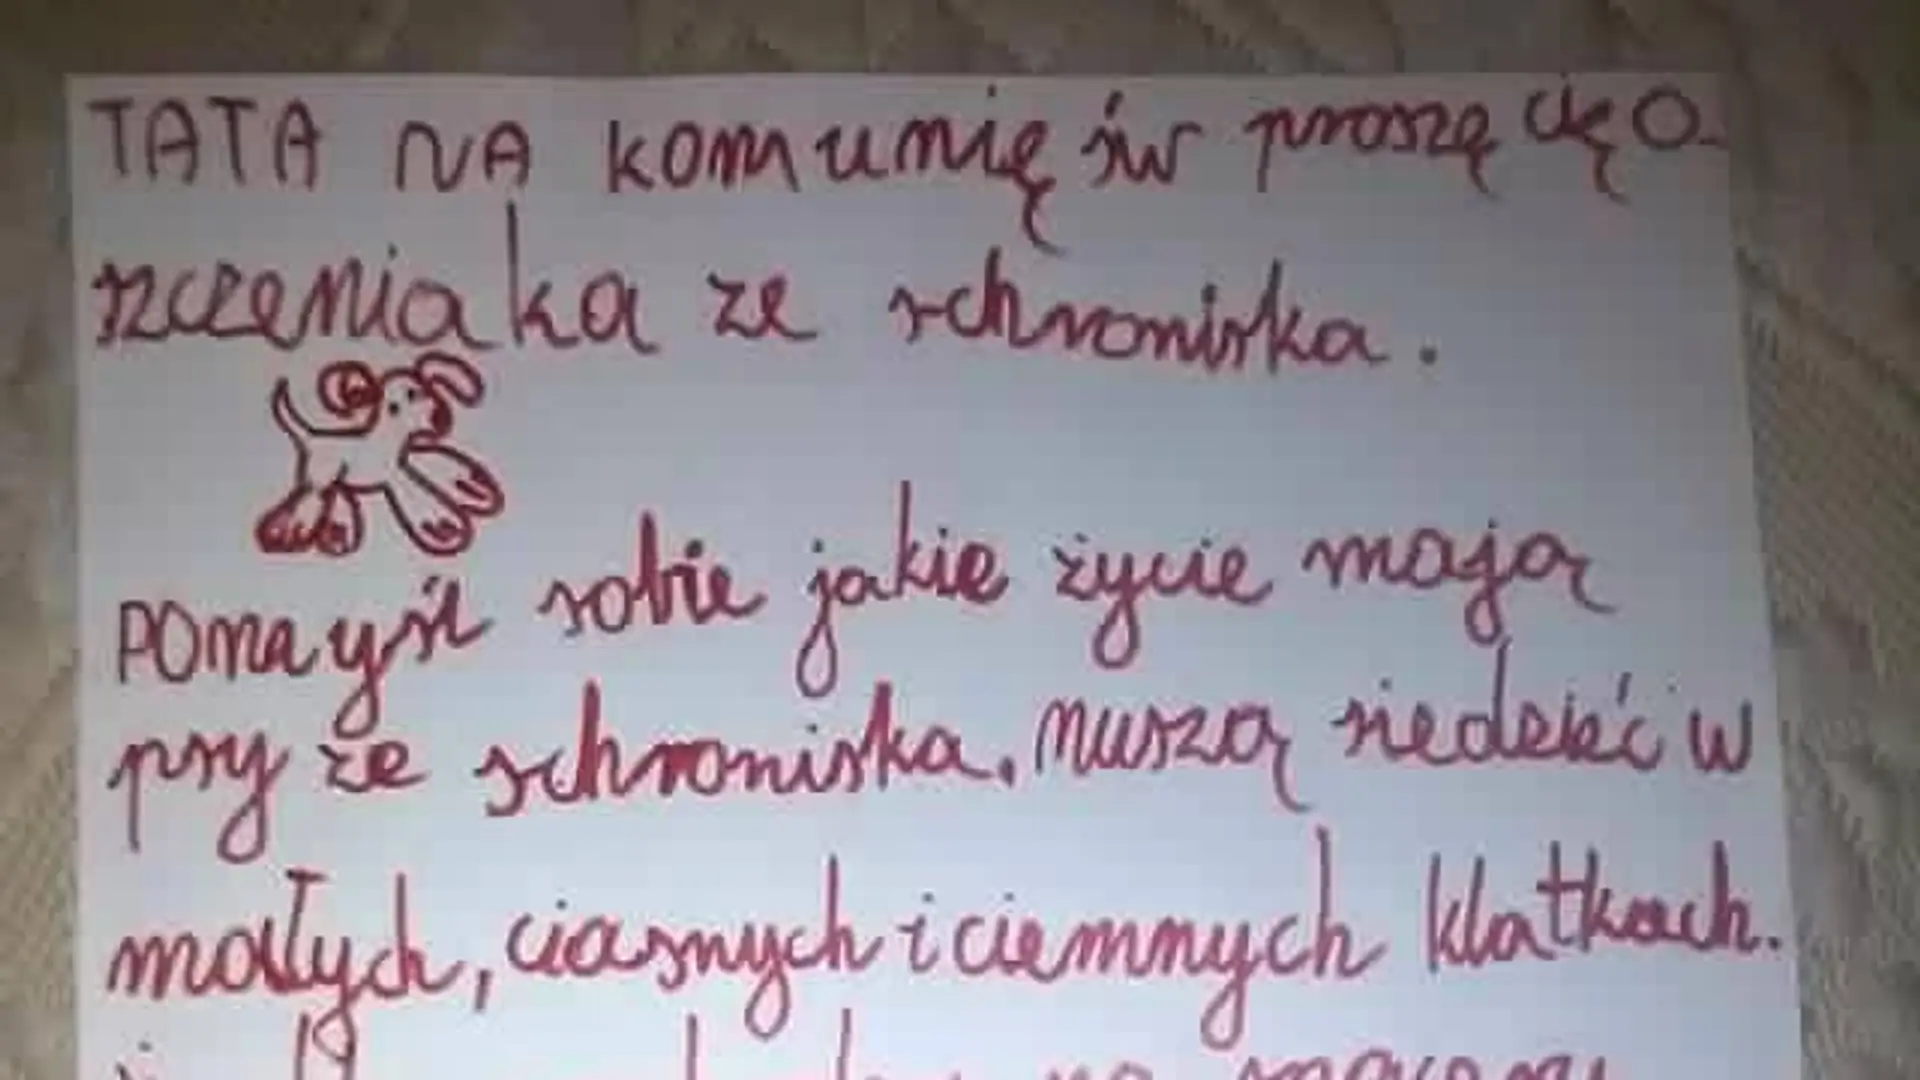 TATA NA komunię św proszę cię o
szczeniaka ze schroniska.
POmyśl sobie jakie życie mają
psy ze schroniska. Muszą siedzieć w
małych, ciasnych i ciemnych klatkach.